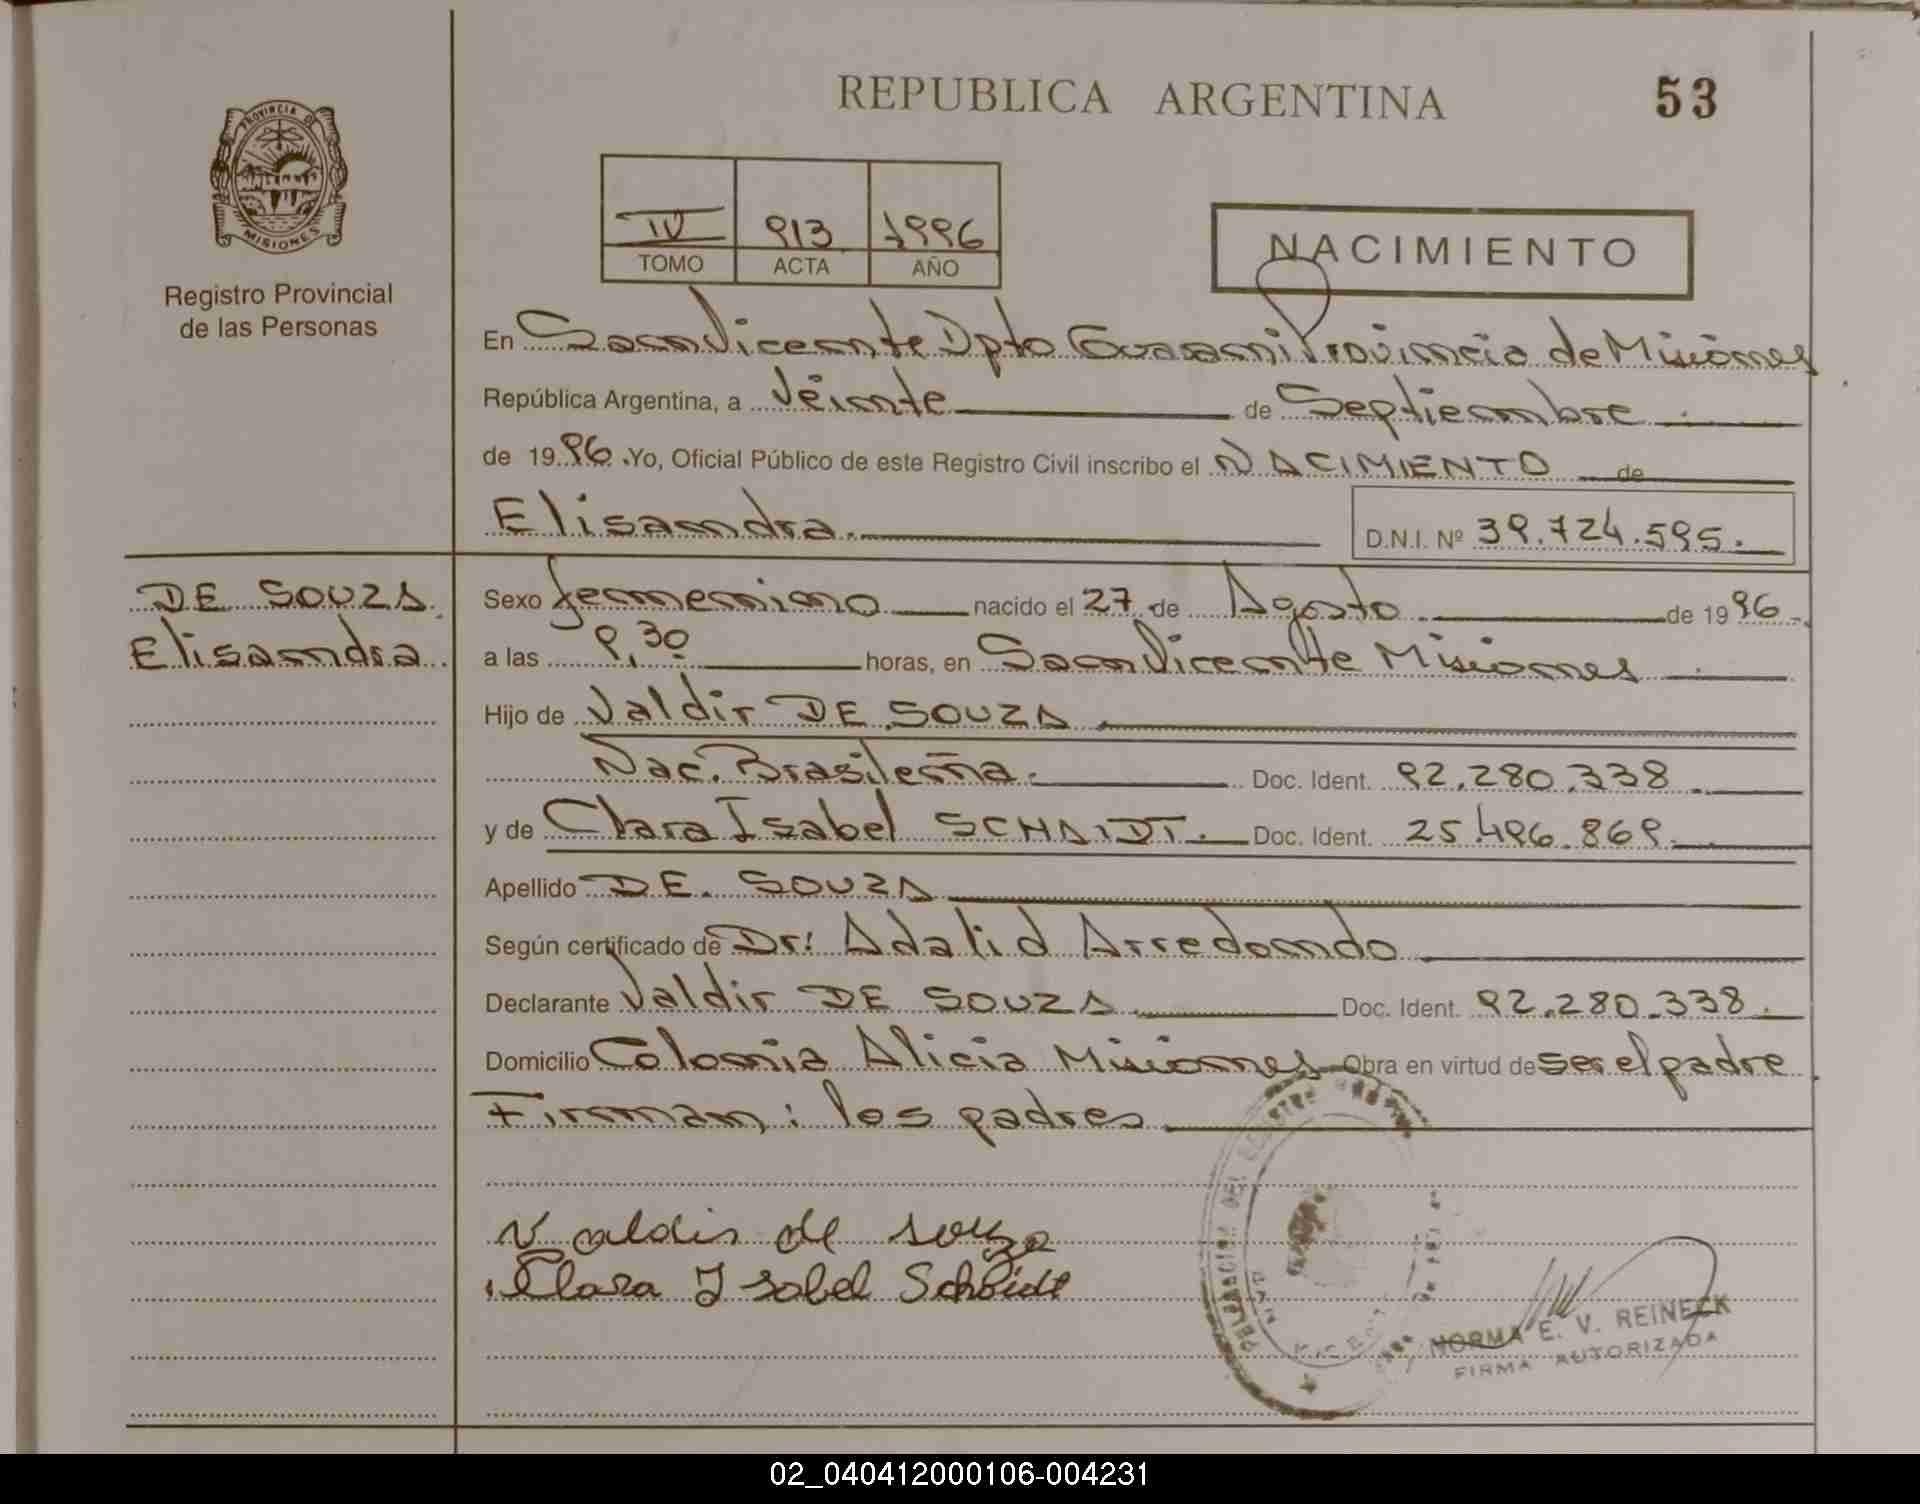 REPUBLICA ARGENTINA
53
PROVINCIA DE
MISIONES
Registro Provincial
de las Personas
IV 913 1996
TOMO ACTA AÑO
NACIMIENTO
En San Vicente Dpto Guarani Provincia de Misiones
República Argentina, a Veinte de Septiembre
de 1996. Yo, Oficial Público de este Registro Civil inscribo el NACIMIENTO de
Elisandra. D.N.I. Nº 39.724.595.
DE SOUZA.
Elisandra.
Sexo femenino nacido el 27 de Agosto de 1996
a las 9,30 horas, en San Vicente Misiones
Hijo de Valdir DE SOUZA
Nac. Brasileña. Doc. Ident. 92.280.338
y de Clara Isabel SCHAIDT. Doc. Ident. 25.496.869.
Apellido DE SOUZA
Según certificado de Dr: Adalid Arredondo
Declarante Valdir DE SOUZA Doc. Ident. 92.280.338.
Domicilio Colonia Alicia Misiones Obra en virtud de ser el padre
Firman: los padres
Valdir de souza
Clara Isabel Schaidt
DELEGACION DEL REGISTRO
NORMA E. V. REINECK
FIRMA AUTORIZADA
02_040412000106-004231